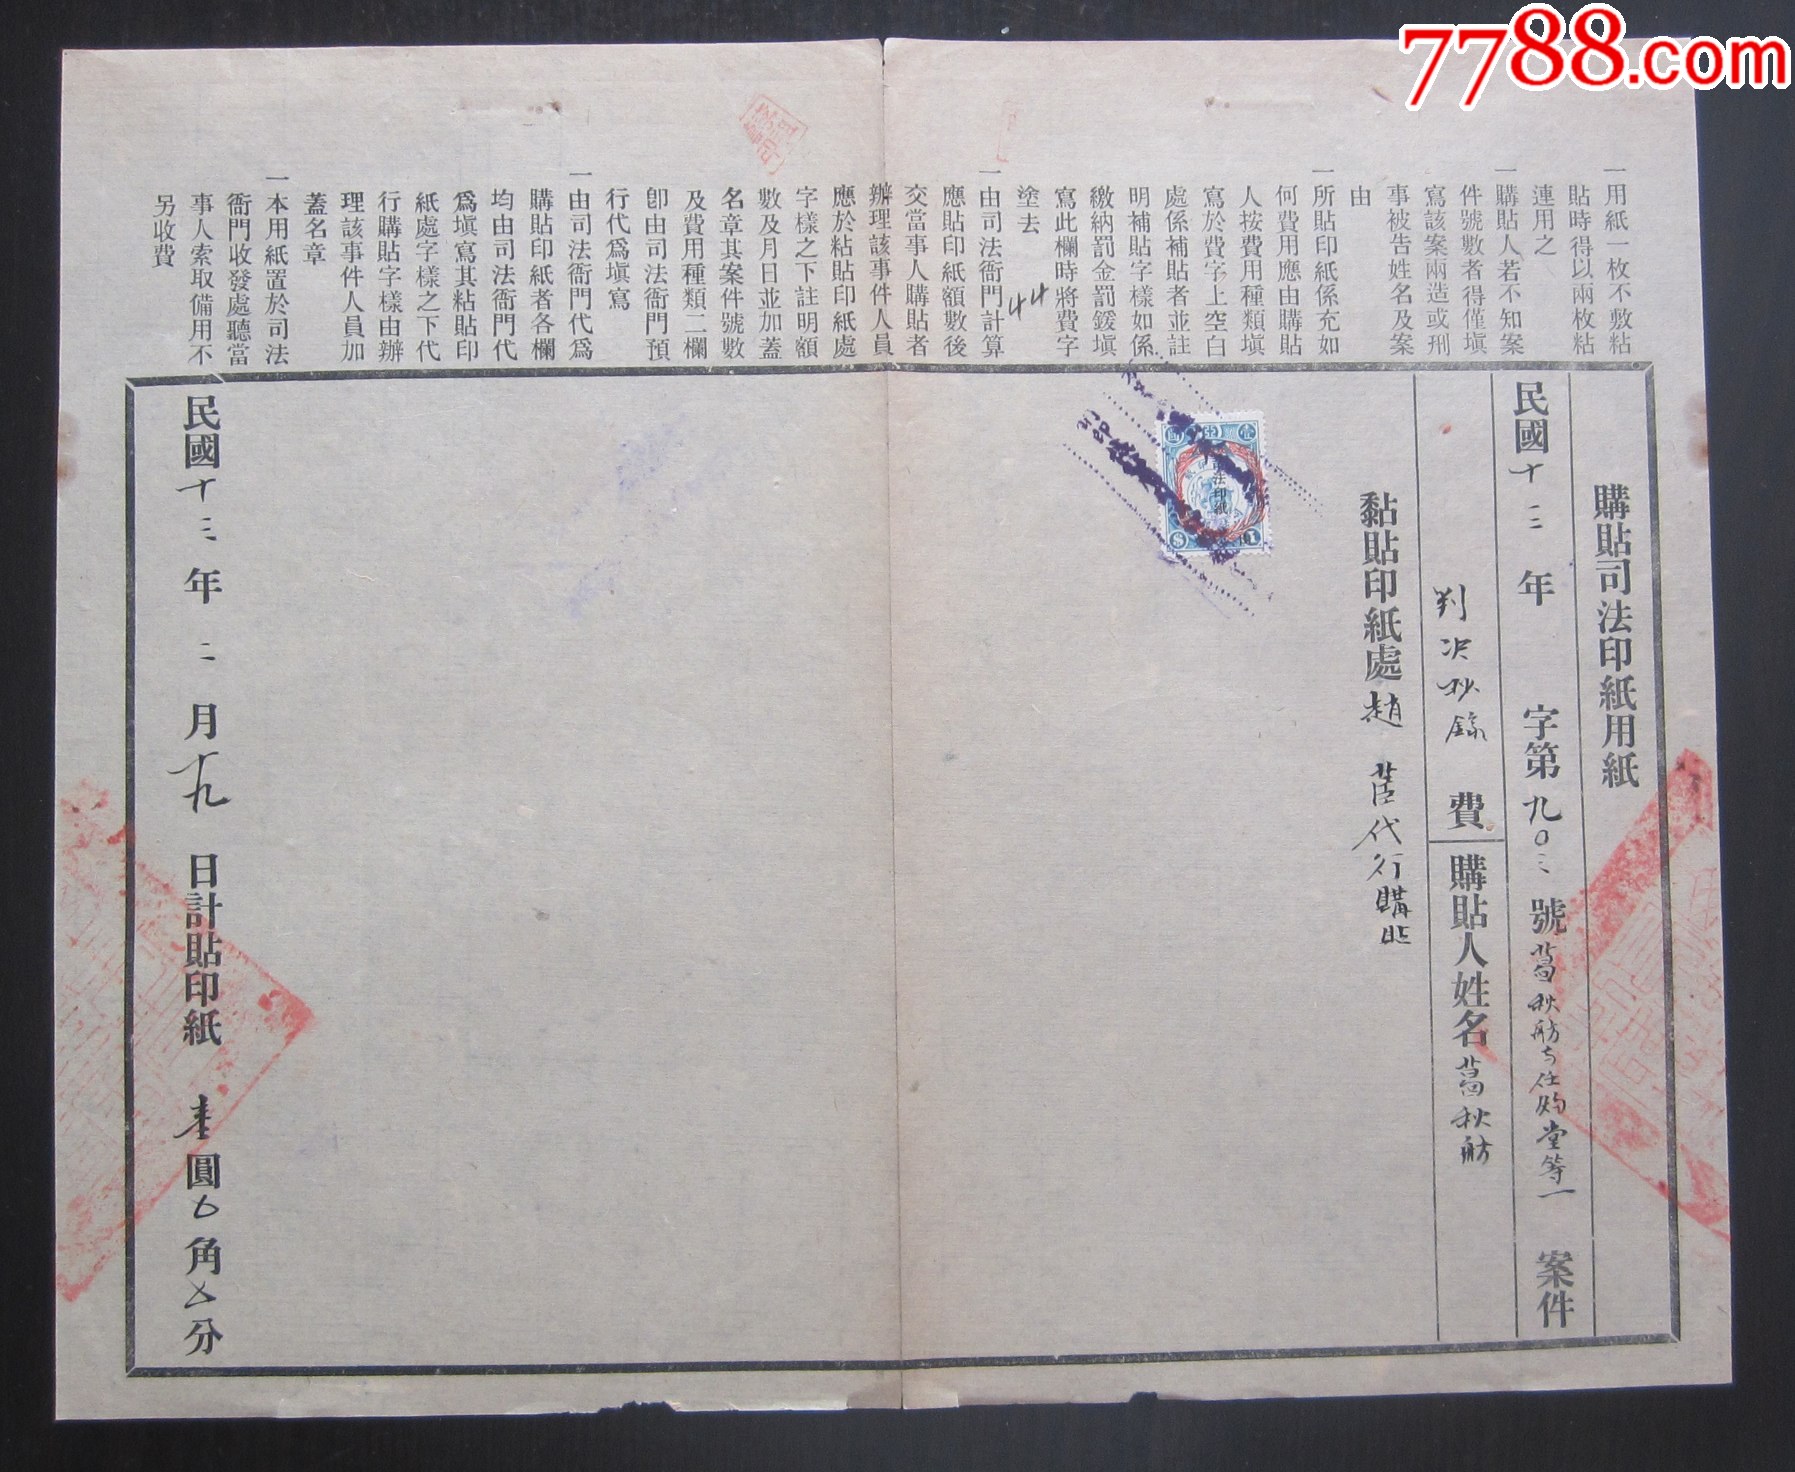 7788.com
一用紙一枚不敷粘
貼時得以兩枚粘
連用之
一購貼人若不知案
件號數者得僅塡
寫該案兩造或刑
事被告姓名及案
由
一所貼印紙係充如
何費用應由購貼
人按費用種類塡
寫於費字上空白
處係補貼者並註
明補貼字樣如係
繳納罰金罰鍰塡
寫此欄時將費字
塗去
一由司法衙門計算
應貼印紙額數後
交當事人購貼者
辦理該事件人員
應於粘貼印紙處
字樣之下註明額
數及月日並加蓋
名章其案件號數
及費用種類二欄
卽由司法衙門預
行代爲塡寫
一由司法衙門代爲
購貼印紙者各欄
均由司法衙門代
爲塡寫其粘貼印
紙處字樣之下代
行購貼字樣由辦
理該事件人員加
蓋名章
一本用紙置於司法
衙門收發處聽當
事人索取備用不
另收費
購貼司法印紙用紙
民國十二年 字第九〇三號葛秋舫与任 堂等一案件
判决抄錄費 購貼人姓名葛秋舫
黏貼印紙處趙 代行購貼
法印紙
民國十三年二月十九日計貼印紙 壹圓 角 分